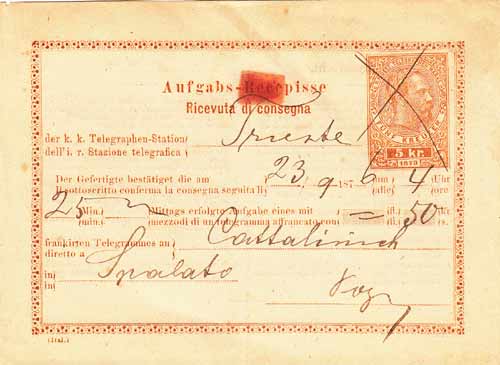 Aufgabs-Recepisse
Ricevuta di consegna
5 kr.
1873
der k. k. Telegraphen-Station
dell' i. r. Stazione telegrafica
Trieste
Der Gefertigte bestätiget die am
Il sottoscritto conferma la consegna seguita il
23 9 187 6
um
alle
4
Uhr
ore
25
Min.
min.
Mittags erfolgte Aufgabe eines mit
mezzodì di un telegramma affrancato con
=
fl.
fl.
50
kr.
frankirten Telegrammes an
diretto a
Cattalinich
in
in
Spalato
(Ital.)